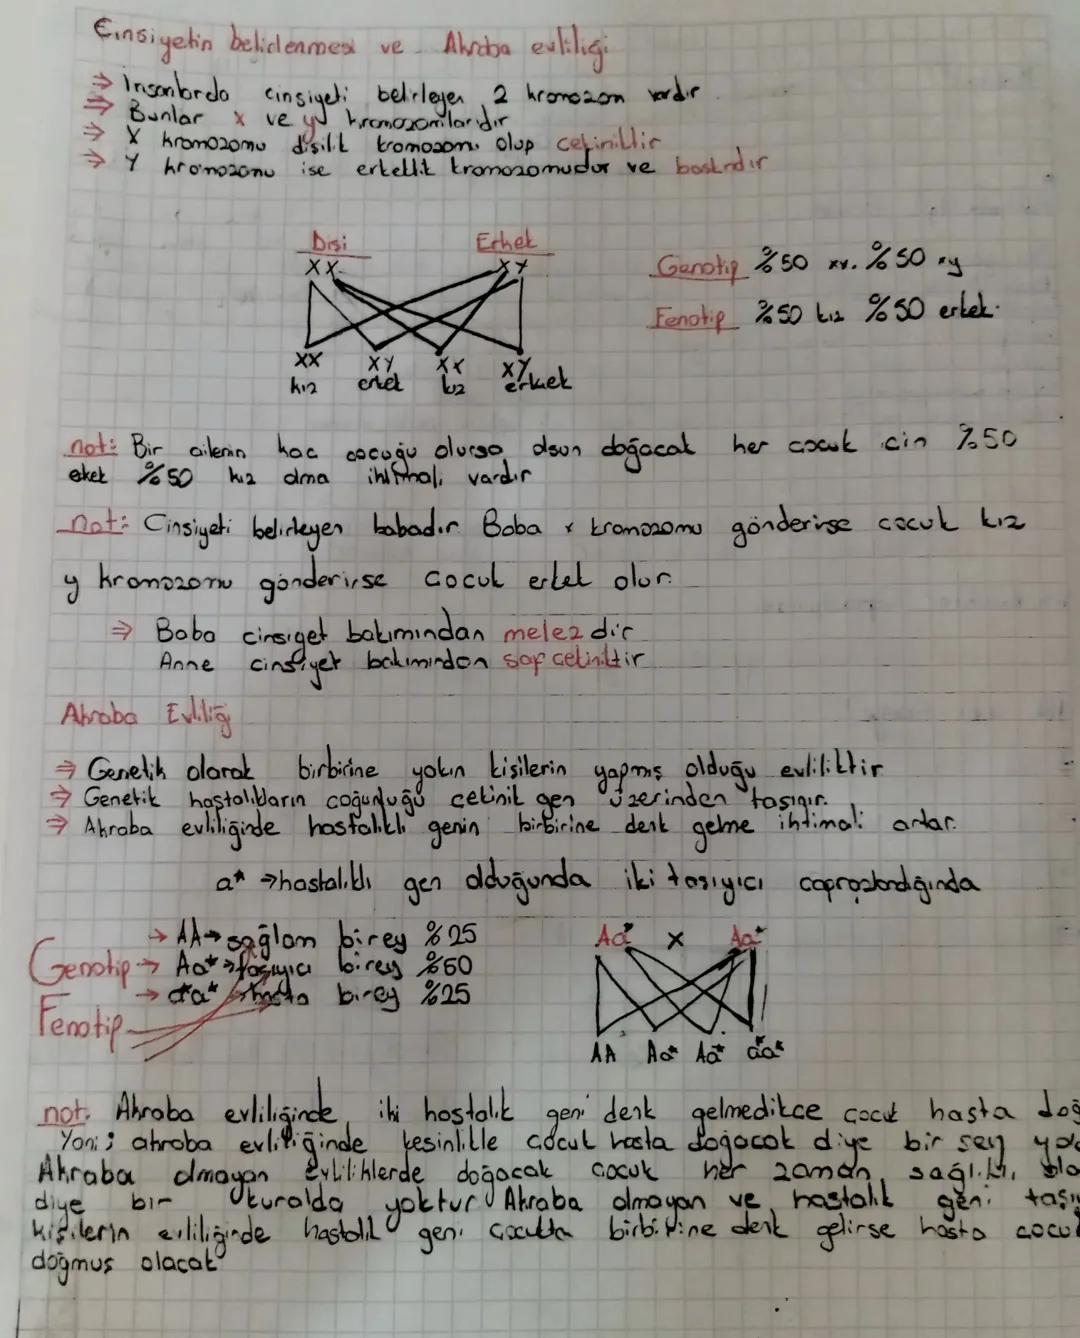 Cinsiyetin belirlenmesi ve Akraba evliliği
⇒ İnsanlarda cinsiyeti belirleyen 2 kromozom vardır
⇒ Bunlar x ve y kromozomlarıdır
⇒ X kromozomu dişilik kromozomu olup çekiniktir
⇒ Y kromozomu ise erkeklik kromozomudur ve baskındır
Dişi Erkek
XX XY
Genotip %50 xx. %50 xy
Fenotip %50 kız %50 erkek.
XX XY XX XY
kız erkek kız erkek
not: Bir ailenin kaç çocuğu olursa olsun doğacak her çocuk için %50
erkek %50 kız olma ihtimali vardır
not: Cinsiyeti belirleyen babadır Baba x kromozomu gönderirse çocuk kız
y kromozomu gönderirse çocuk erkek olur.
⇒ Baba cinsiyet bakımından melezdir
Anne cinsiyet bakımından saf çekiniktir
Akraba Evliliği
⇒ Genetik olarak birbirine yakın kişilerin yapmış olduğu evliliktir
⇒ Genetik hastalıkların çoğunluğu çekinik gen üzerinden taşınır.
⇒ Akraba evliliğinde hastalıklı genin birbirine denk gelme ihtimali artar.
a* → hastalıklı gen olduğunda iki taşıyıcı çaprazlandığında
→ AA → sağlam birey %25
Genotip → Aa* → taşıyıcı birey %50
→ a*a* → hasta birey %25
Fenotip
Aa* x Aa*
AA Aa* Aa* a*a*
not: Akraba evliliğinde iki hastalık geni denk gelmedikçe çocuk hasta doğ
Yani; akraba evliliğinde kesinlikle çocuk hasta doğacak diye bir şey yok
Akraba olmayan evliliklerde doğacak çocuk her zaman sağlıklı ola
diye bir kuralda yoktur Akraba olmayan ve hastalık geni taşıy
kişilerin evliliğinde hastalık geni çocukta birbirine denk gelirse hasta çocuk
doğmuş olacak